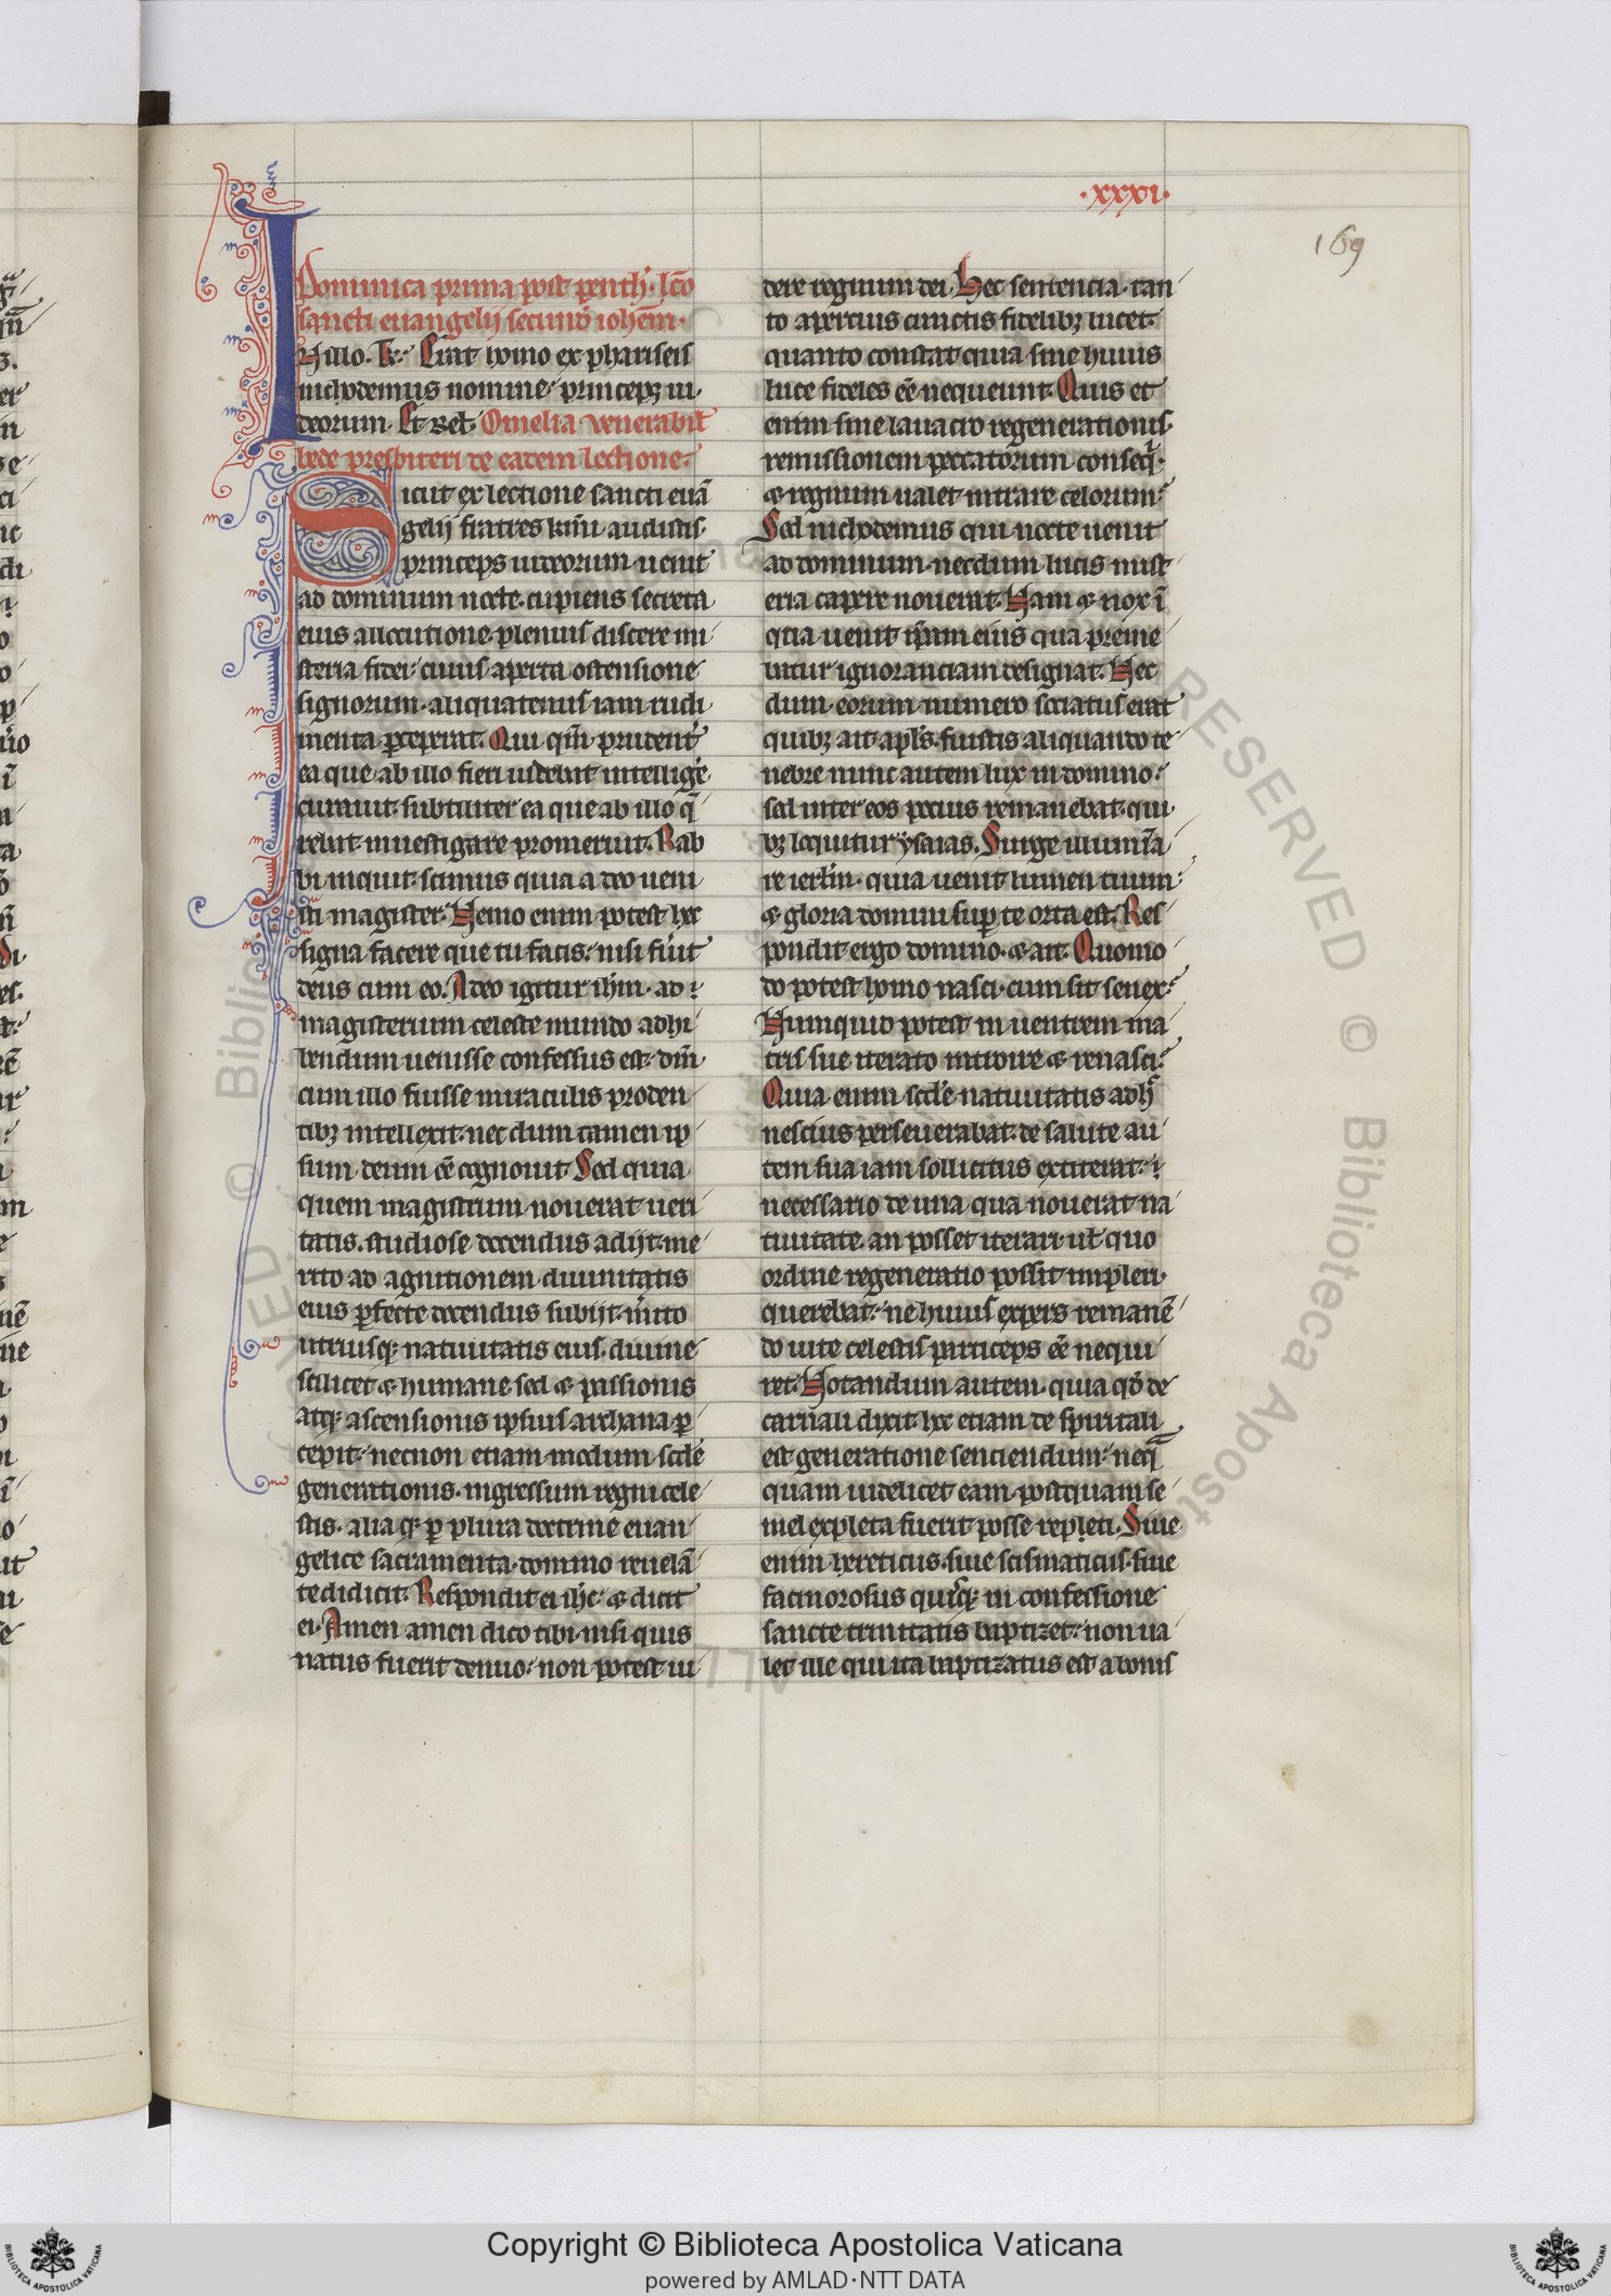 ·xxxi·
169
Dominica prima post penth'. lc̄o
sancti euangelij secund' ioh'em·
IN illo. T̄r· Erat homo ex phariseis
nichodemus nomine· princeps iu
deorum. Et Rel'. Omelia venerabil'
bede presbiteri de eadem lectione.
Sicut ex lectione sancti euā
gelij fratres kmi audistis·
princeps iudeorum uenit
ad dominum nocte. cupiens secreta
eius allocutione plenius discere mi
steria fidei· cuius aperta ostensione
signorum· aliquatenus iam rudi
menta ꝑceperat. Qui qm̄ prudent'
ea que ab illo fieri uidebat intellige'
curauit· subtiliter ea que ab illo q̄
rebat inuestigare promeruit. Rab
bi inquit· scimus quia a deo ueni
sti magister. Nemo enim potest hec
signa facere que tu facis· nisi fu'it
deus cum eo. Adeo igitur ihm· ad
magisterium celeste mundo adhi
bendum uenisse confessus est· dm̄
cum illo fuisse miraculis proden
tibꝫ intellexit· nec dum tamen ip
sum deum cē cognouit Sed quia
quem magistrum nouerat ueri
tatis. studiose docendus adijt· me
rito ad agnitionem diuinitatis
eius ꝑfecte docendus subijt· m'ito
utriusqꝫ natiuitatis eius· diuine
scilicet ⁊ humane· sed ⁊ passionis
atqꝫ ascensionis ipsius archana ꝑ
cepit· necnon etiam modum scd'e
generationis· ingressum regni cele
stis. alia qꝫ ꝑ plura doctrine euan
gelice sacramenta· domino reuelā
te didicit. Respondit ei ihc· ⁊ dixit
ei· Amen amen dico tibi· nisi quis
natus fuerit denuo· non potest ui
dere regnum dei. Hec sentencia· tan
to apertius cunctis fidelibꝫ lucet·
quanto constat quia sine huius
luce fideles eē nequeunt. Quis et
enim sine lauacro regenerationis·
remissionem peccatorum conseq'·
⁊ regnum ualet intrare celorum·
Sed nichodemus qui nocte uenit
ad dominum· necdum lucis mist
eria capere nouerat. Nam ⁊ nox ī
qua uenit ip̄am eius qua preme
batur ignoranciam designat. Nec
dum· eorum numero sociatus erat
quibꝫ ait apl's. fuistis aliquando te
nebre nunc autem lux in domino·
sed inter eos pocius remanebat· qui
bꝫ loquitur ysaias. Surge illumīa
re ierl'm· quia uenit lumen tuum·
⁊ gloria domini suꝑ te orta est. Res
pondit ergo domino· ⁊ ait. Quomo
do potest homo nasci· cum sit senex·
Numquid potest in uentrem ma
tris sue iterato introire ⁊ renasci·
Quia enim scd'e natiuitatis adhᶜ
nescius perseuerabat· de salute au
tem sua iam sollicitus extiterat·
necessario de una qua nouerat na
tiuitate· an posset iterari· ul' quo
ordine regeneratio possit impleri·
querebat· ne huius expers remanē
do uite celestis particeps eē nequi
ret. Notandum autem· quia qd' de
carnali dixit· hec etiam de spiritali
est generatione senciendum· neq̄
quam uidelicet eam· postquam se
mel expleta fuerit posse repleti. Siue
enim hereticus· siue scismaticus· siue
facinorosus quisqꝫ in confessione
sancte trinitatis baptizet· non ua
let ille qui ita baptizatus est a bonis
Copyright © Biblioteca Apostolica Vaticana
powered by AMLAD·NTT DATA